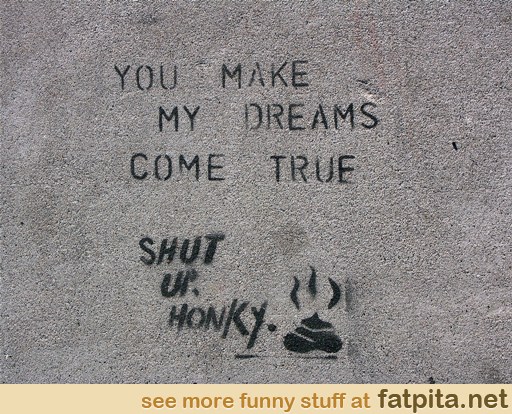 YOU MAKE
MY DREAMS
COME TRUE
SHUT
UP.
HONKY.
see more funny stuff at fatpita.net